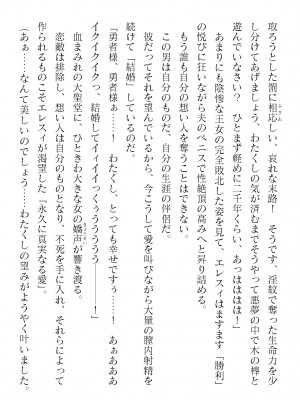 取ろうとした罰に相応しい、哀れな末路！　そうです、淫紋で奪った生命力を少
し分けてあげましょう、わたくしの気が済むまでそうやって悪夢の中で木の棒と
遊んでいなさい？　ひとまず軽めに二千年くらい、あっははははは！」
　あまりにも陰惨な王女の完全敗北した姿を見て、エレスィはますます「勝利」
の悦びに狂いながら夫のペニスで性絶頂の高みへと昇り詰める。
　もう誰も自分の想い人を奪うことはできない。
　この男は自分のもの、自分だけのもの、自分の生涯の伴侶だ。
　彼だってそれを望んでいるから、今こうして愛を叫びながら大量の膣内射精を
続けて「結婚」しているのだ。
「勇者様、勇者様ぁ……！　わたくし、とっても幸せですぅ……！　あぁああああ
イクイクイクっ、結婚してイィイイっくぅううううう――――！」
　血まみれの大聖堂に、ひときわ大きな女の嬌声が響き渡る。
　恋敵は排除し、想い人は自分のものとなり、不死を手に入れ、それらによって
作られるものこそエレスィが渇望した「永久に真実なる愛」。
（あぁ……なんて美しいのでしょう……わたくしの望みがようやく叶いました。